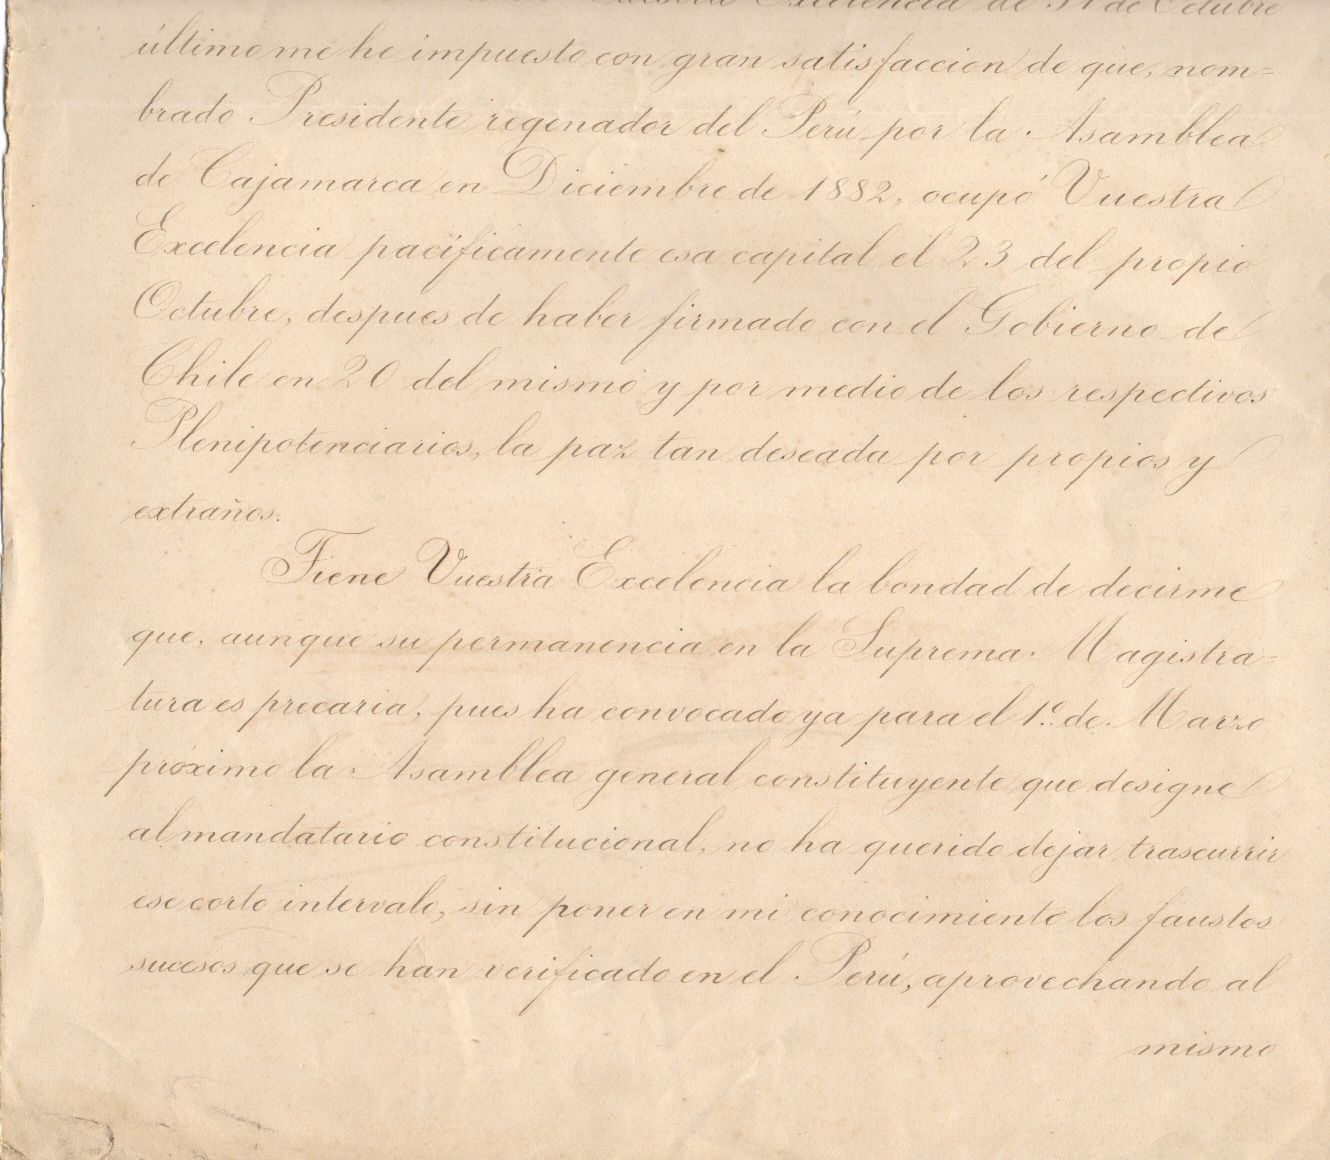 Vuestra Excelencia de 31 de Octubre
último me he impuesto con gran satisfaccion de que, nom=
brado Presidente regenador del Perú por la Asamblea
de Cajamarca en Diciembre de 1882, ocupó Vuestra
Excelencia pacíficamente esa capital el 23 del propio
Octubre, despues de haber firmado con el Gobierno de
Chile en 20 del mismo y por medio de los respectivos
Plenipotenciarios, la paz tan deseada por propios y
extraños.
Tiene Vuestra Excelencia la bondad de decirme
que, aunque su permanencia en la Suprema Magistra=
tura es precaria, pues ha convocado ya para el 1º de Marzo
próximo la Asamblea general constituyente que designe
al mandatario constitucional, no ha querido dejar trascurrir
ese corto intervalo, sin poner en mi conocimiento los faustos
sucesos que se han verificado en el Perú, aprovechando al
mismo